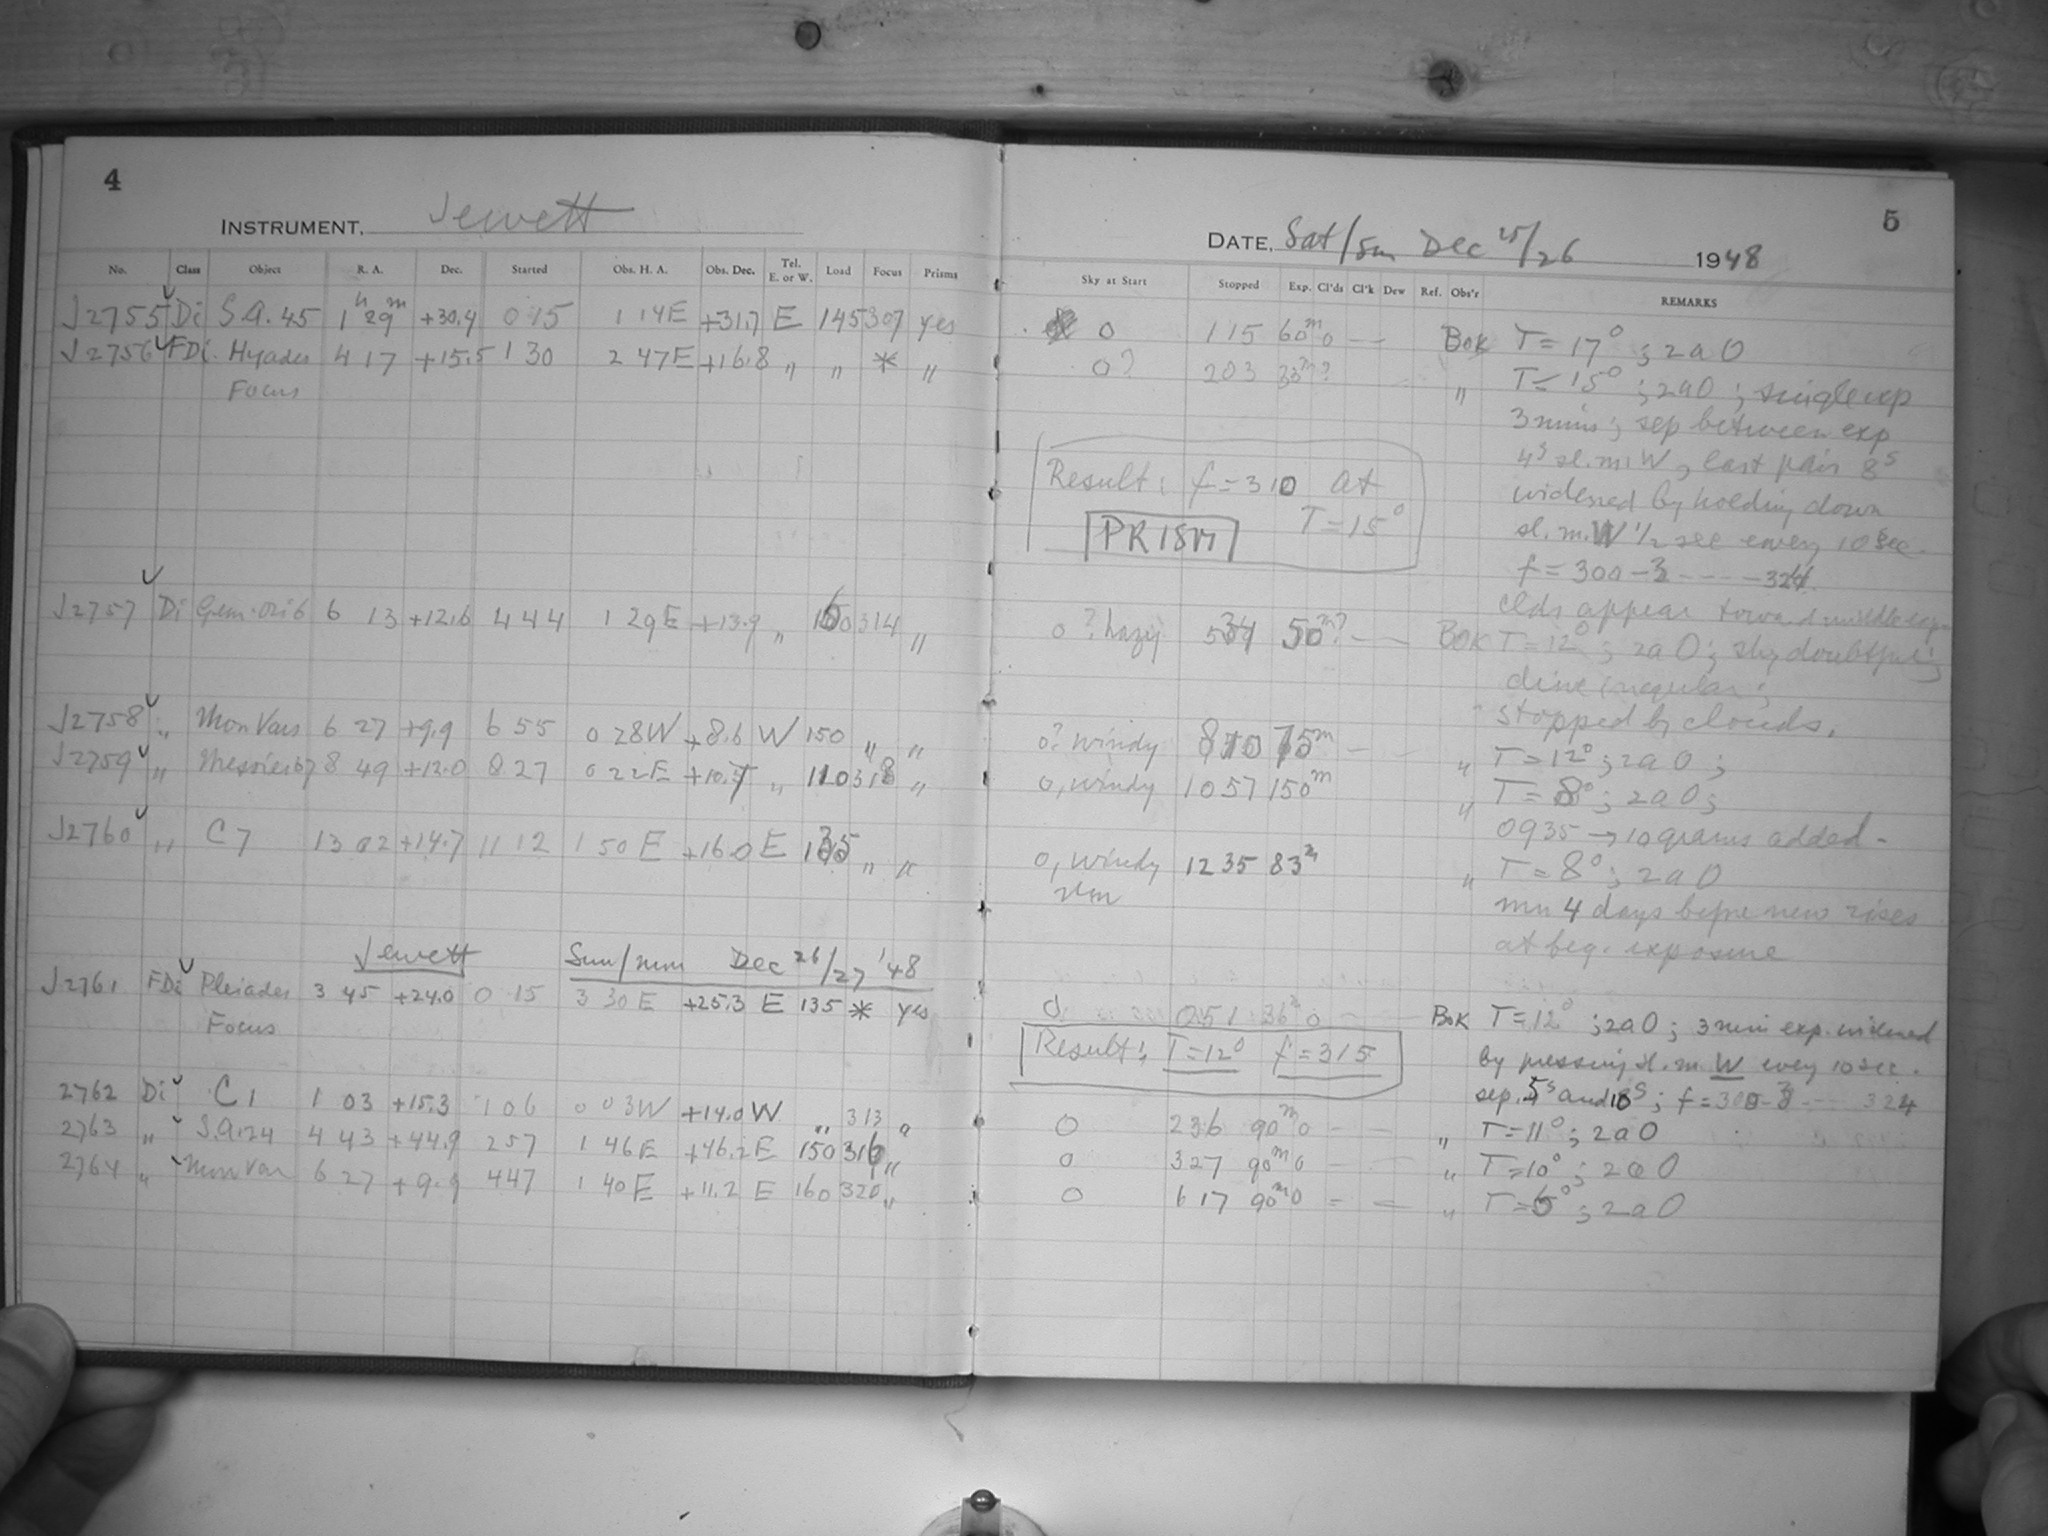 4
INSTRUMENT. Jewett
No. Class Object R. A. Dec. Started Obs. H. A. Obs. Dec. Tel. E. or W. Load Focus Prisms
J2755 Di S.A. 45 1h 29m +30.4 0 15 1 14E +31.7 E 145 307 yes
J2756 FDi. Hyades 4 17 +15.5 1 30 2 47E +16.8 " " * "
Focus
J2757 Di Gem-Ori 6 6 13 +12.6 4 44 1 29E +13.9 " 150 314 "
J2758 " Mon Vars 6 27 +9.9 6 55 0 28W +8.6 W 150 " "
J2759 " Messier 67 8 49 +12.0 8 27 0 22E " 110 318 "
J2760 " C7 13 02 +14.7 11 12 1 50 E +16.0 E 135 " "
Jewett Sun/mon Dec 26/27 '48
J2761 FDi Pleiades 3 45 +24.0 0 15 3 30 E +25.3 E 135 * yes
Focus
2762 Di C1 1 03 +15.3 1 06 0 03W +14.0 W " 313 "
2763 " S.A. 24 4 43 +44.9 2 57 1 46E +46.2 E 150 316 "
2764 " Mon Var 6 27 +9.9 4 47 1 40E +11.2 E 160 320 "
5
DATE, Sat/Sun Dec 25/26 1948
Sky at Start Stopped Exp. Cl'ds Cl'k Dew Ref. Obs'r REMARKS
0 1 15 60m 0 — — Bok T = 17° ; 2a O
0? 2 03 33m? " T = 15° ; 2a O ; single exp
3 mins ; sep between exp
4s sl. m. W, last pair 8s
widened by holding down
sl. m. W 1/2 sec every 10 sec.
f = 300 – 3 - - - - 324.
Result: f = 310 at
T = 15°
PRISM
clds appear toward middle exp.
0? hazy 5 34 50m? — — Bok T = 12° ; 2a O ; sky doubtful ;
drive irregular ;
stopped by clouds.
0? windy 8 10 75m — — " T = 12° ; 2a O ;
0, windy 10 57 150m " T = 8° ; 2a O ;
0935 → 10 grams added -
0, windy 12 35 83m " T = 8° ; 2a O
mn 4 days before new rises
at beg. exposure
0 51 36m 0 — Bok T = 12° ; 2a O ; 3 min exp. widened
by pressing sl. m. W every 10 sec.
sep. 5s and 10s ; f = 300–3 - - - 324
Result: T = 12° f = 315
0 2 36 90m 0 — — " T = 11° ; 2a O
0 3 27 90m 0 — — " T = 10° ; 2a O
0 6 17 90m 0 = — " T = 6° ; 2a O